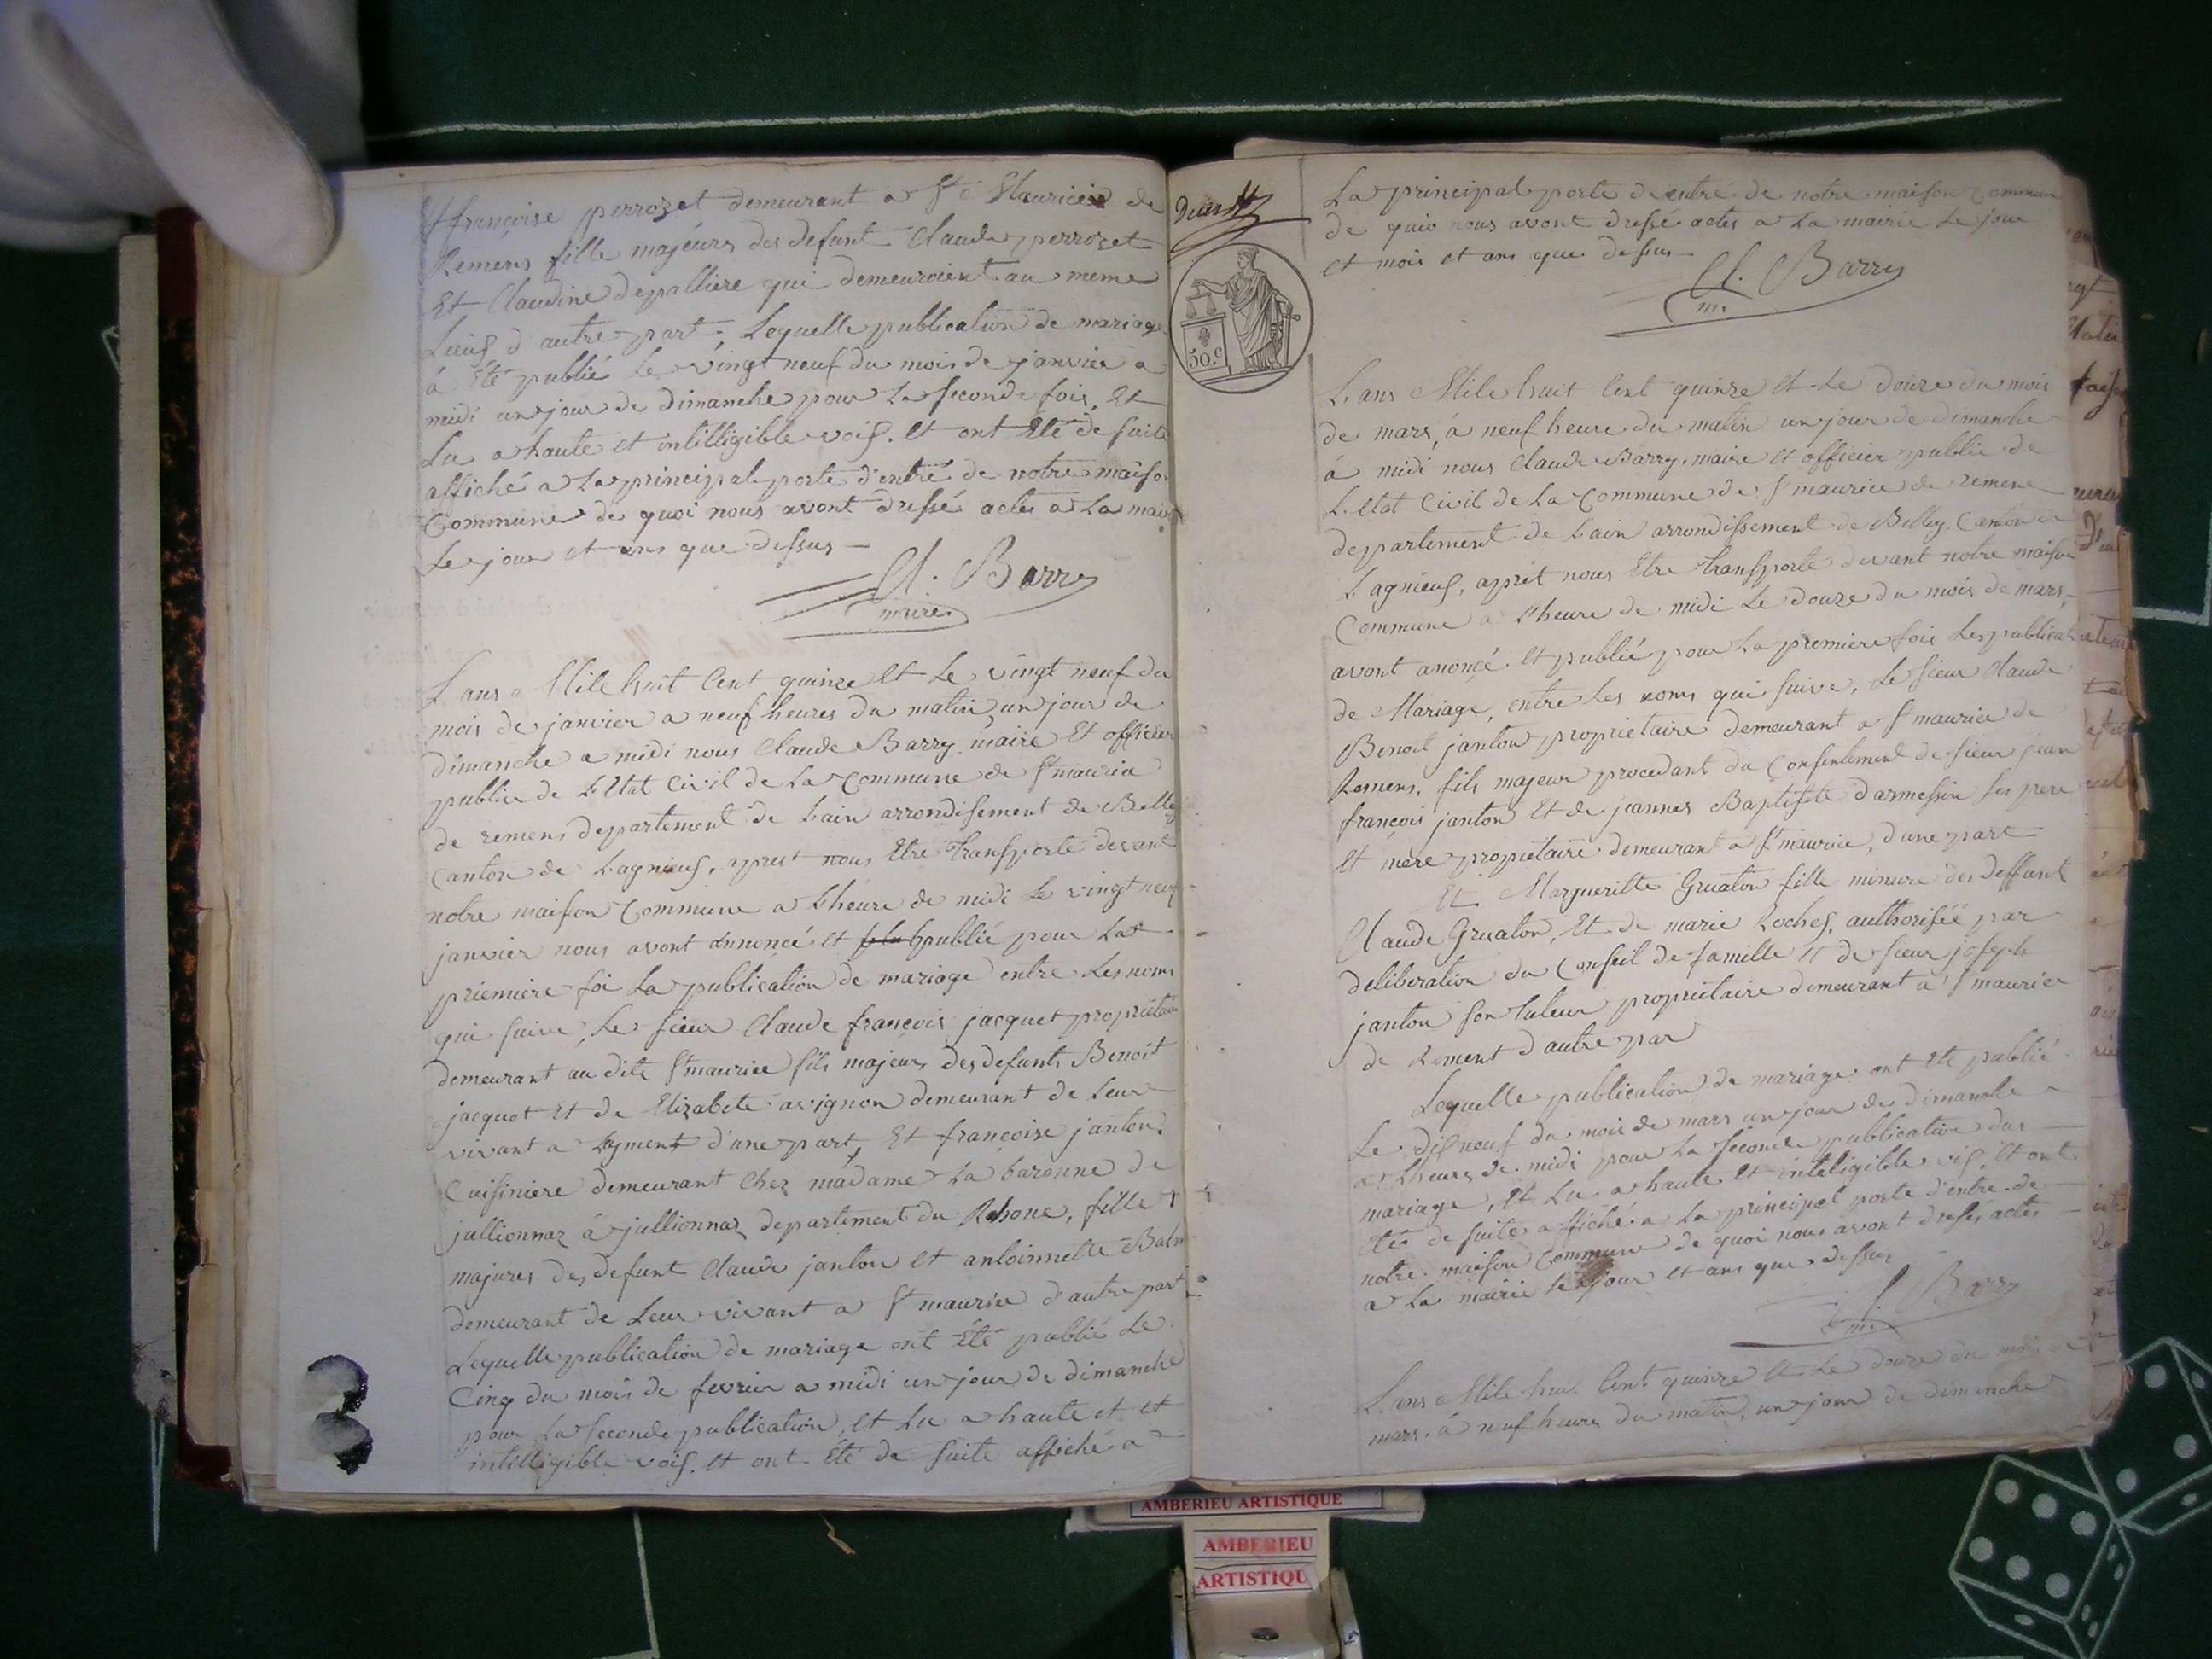 françoise perrozet demeurant a St Mauricie de
Remens fille majeurs des defunt Claude perrozet
Et Claudine depalliere qui demeuroient au meme
Lieuf d autre part = Lequelle publication de mariage
á Eté publié le vingt neuf du mois de janvier a
midi un jour de dimanche pour La seconde fois, Et
Lu a haute et intilligible voif. Et ont Eté de suite
affiché a La principal porte d'entré de notre maison
Commune de quoi nous avont dressé actes a La mairie
Le jour et ans que dessus —
Cl. Barry
maire
L ans Mile huit Cent quinze Et Le vingt neuf du
mois de janvier a neuf heures du matin un jour de
dimanche a midi nous Claude Barry maire Et officier
public de L Etat Civil de La Commune de St maurice
de remens departement de Lain arrondissement de Belley
Canton de Lagnieuf, aprest nous Etre Transporté devant
notre maison Commune a L heure de midi le vingt neuf
janvier nous avont annoncé et publié pour La
priemiere foi La publication de mariage entre Les noms
qui suive, Le sieur Claude françois jacquet propriétaire
demeurant au dite St maurice fils majeur des defunts Benoit
jacquet Et de Elizabete avignon demeurant de Leur
vivant a Lagment d'une part, Et françoise janton,
Cuisiniere demeurant Chez madame La baronne de
jullionnaz á jullionnaz departement du Rhone, fille
majures des defunt Claude janton et antoinnette Balm
demeurant de Leur vivant a St maurice d'autre part
Lequelle publication de mariage ont Eté publié Le
Cinq du mois de fevrier a midi un jour de dimanche
pour La seconde publication, et Lu a haute et et
intelligible voif. Et ont Eté de suite affiché a
La principal porte de entré de notre maison Commune
de quoi nous avont dressé actes a La mairie Le jour
et mois et ans que dessus —
Cl. Barry
m.
50.c
L. ans Mile huit Cent quinze Et Le douze du mois
de mars, á neuf heure du matin un jour de dimanche
á midi nous Claude Barry, maire Et officier public de
L. Etat Civil de La Commune de St maurice de remens
departement de Lain arrondissement de Belley Canton de
Lagnieuf, apret nous Etre Transporté devant notre maison
Commune a L heure de midi Le douze du mois de mars,
avont anoncé Et publié pour La premiere fois Les publications
de Mariage, entre Les noms qui suive, Le sieur Claude
Benoit janton propriétaire demeurant a St maurice de
Remens, fils majeur procedant du Consentement de sieur jean
françois janton Et de jeannes Baptiste darmessin ses pere
Et mere propriétaire demeurant a St maurice, d'une part
Et Marguerilte Gruaton fille minure des deffunt
Claude Gruaton, Et de marie Rochef, authorisée par
deliberation du Conseil de famille Et de sieur joseph
janton son tuteur propriétaire demeurant a St maurice
de Rement d autre par
Lequelle publication de mariage ont Eté publié
Le dif neuf du mois de mars un jour de dimanche
a Lheure de midi pour La seconde publication du
mariage, Et Lu a haute Et inteligible vif, Et ont
Eté de suite affiché a La principal porte d'entre de
notre maison Commune de quoi nous avont dressé actes
a La mairie le jour et ans que dessus
Cl. Barry
m.
L. ans Mile huit Cent quinze Et Le douze du mois de
mars á neuf heures du matin, un jour de dimanche
AMBERIEU ARTISTIQUE
AMBERIEU
ARTISTIQU